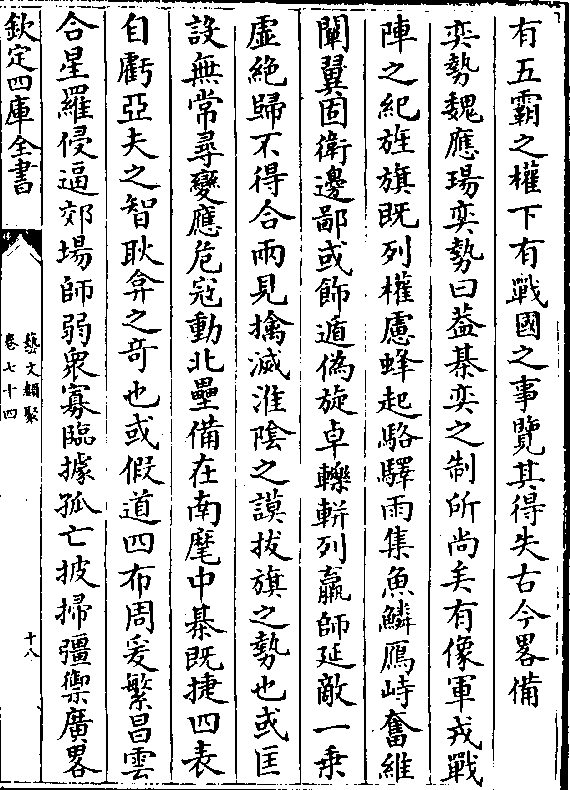 有五霸之權下有戰國之事覽其得失古今畧備
奕勢魏應瑒奕勢曰葢棊奕之制所尚矣有像軍戎戰
陣之紀旌旗既列權慮蜂起駱驛雨集魚鱗鴈峙奮維
闡翼固衛邊鄙或飾遁偽旋卓轢軿列羸師延敵一乗
虛絶歸不得合兩見擒滅淮陰之謨拔旗之勢也或匡
設無常尋變應危冦動北壘備在南麾中棊既捷四表
自虧亞夫之智耿弇之奇也或假道四布周爰繁昌雲
合星羅侵逼郊場師弱衆寡臨據孤亡披掃彊禦廣畧
欽定四庫全書
藝文類聚
卷七十四
十八